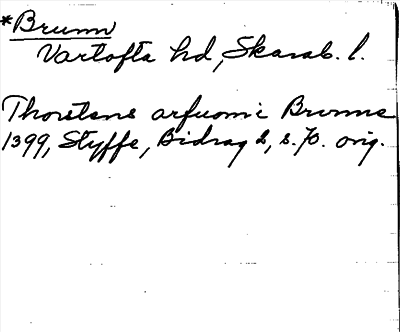 *Brunn
Vartofta hd, Skarab. l.
Thorstens arfuom i Brvnne
1399, Styffe, Bidrag 2, s. 70. orig.